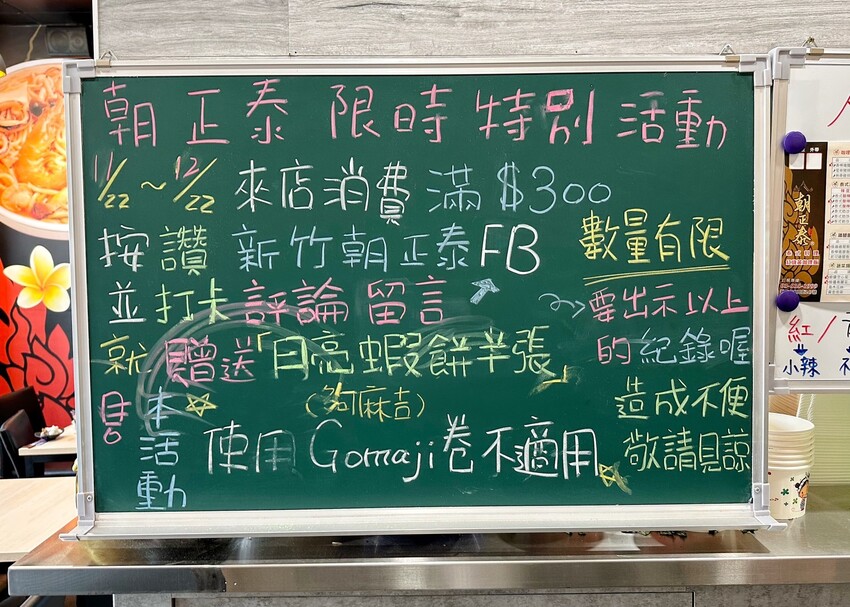 朝正泰 限時特別活動
11/22~12/22 來店消費滿$300
按讚 新竹朝正泰FB
並打卡評論留言
就贈送「月亮蝦餅半張」
(夠麻吉)
本活動
使用Gomaji卷不適用
數量有限
要出示以上
的紀錄喔
造成不便
敬請見諒
朝正泰
紅/
小辣